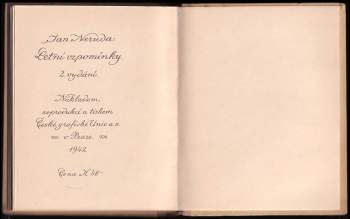 Jan Neruda
Letní vzpomínky
2. vydání.
Nákladem,
reprodukcí a tiskem
České grafické Unie a.s.
v Praze
1942
Cena K 48